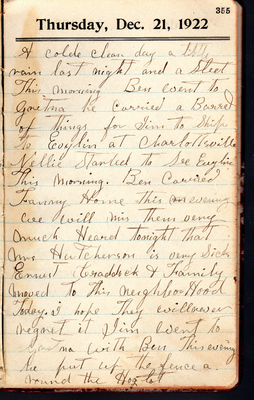 355
Thursday, Dec. 21, 1922
A colde clean day a little
rain last night and a Sleet
This morning Ben went to
Goretna he carried a Barrel
of Things for Jim to Ship
To Evylin at Charlottsville
Nellie Started to See Evylin
This morning. Ben Carried
Fanny Home this evening
cee will mis them very
much Heard tonight that
Mrs Hutcherson is very Sick
Ernest Craddock & Family
moved to This neighborHood
Today. I hope They will
regret it Jim went to
with Ben This evening
he put up the fence a
round the Hog lot